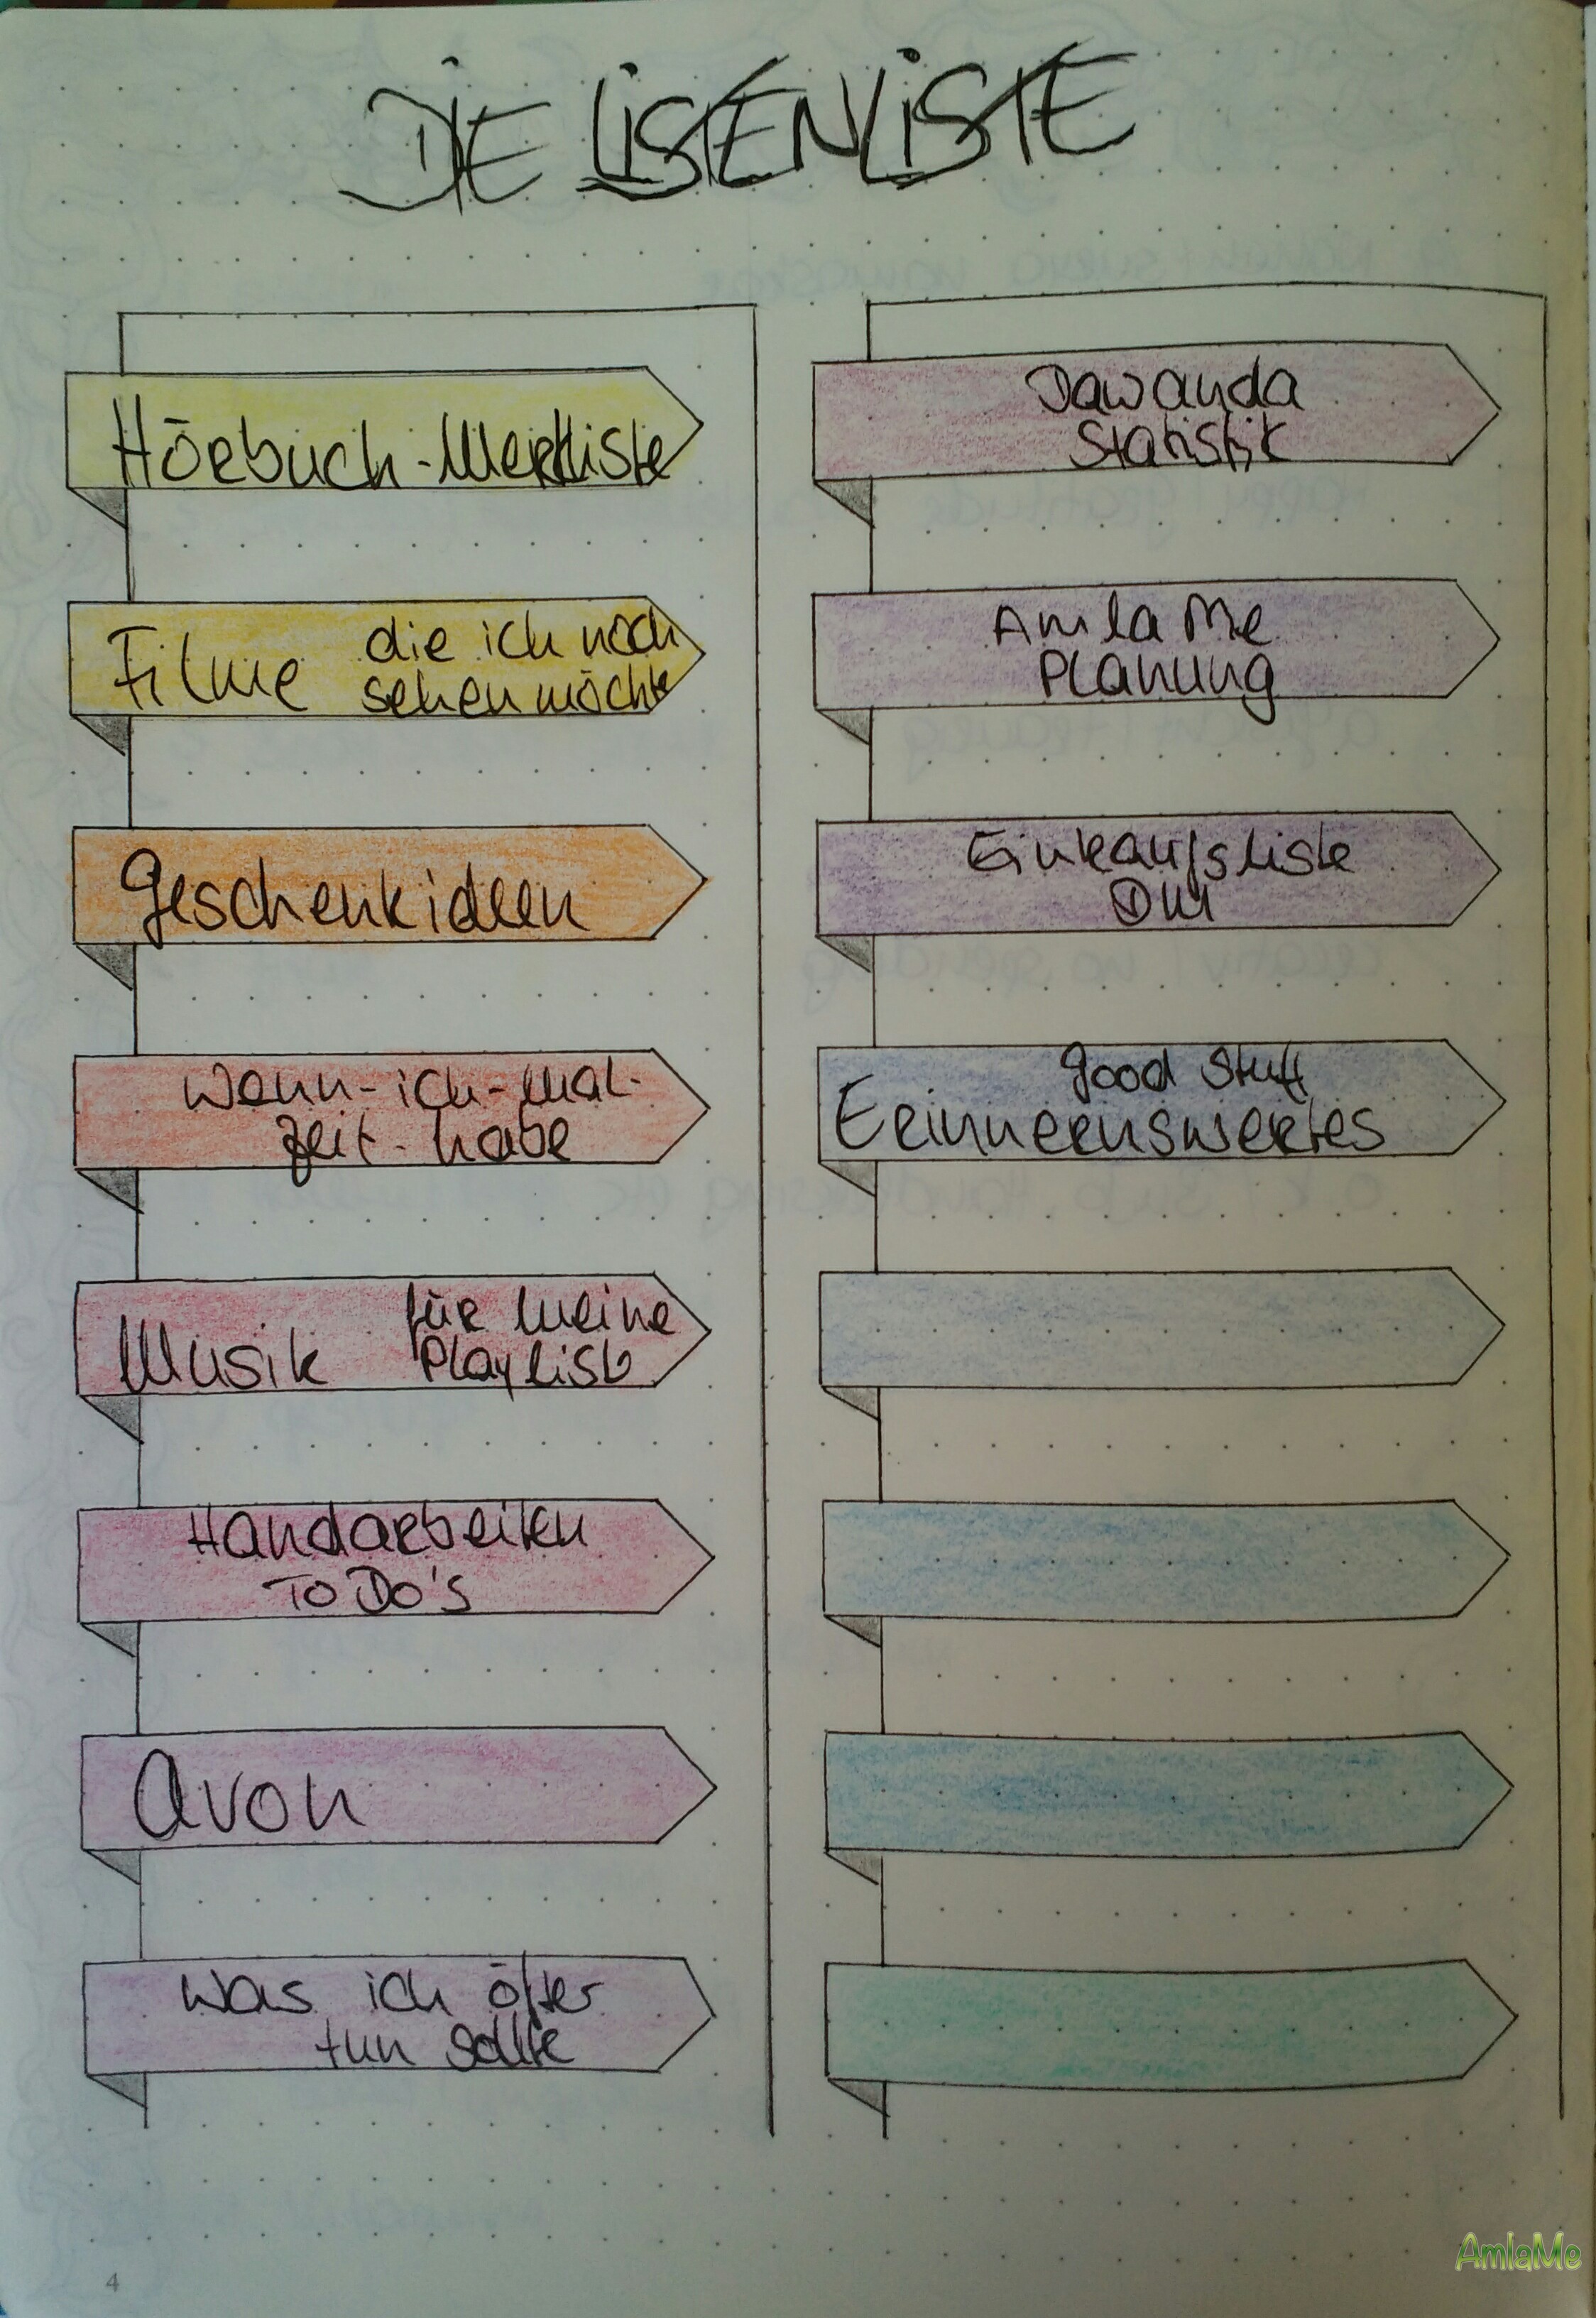 DIE LISTENLISTE
Hörbuch-Merkliste
Filme die ich noch
sehen möchte
Geschenkideen
Wenn-ich-mal-
Zeit-habe
Musik für meine
Playlist
Handarbeiten
To Do's
Avon
Was ich öfter
tun sollte
Dawanda
Statistik
AmlaMe
Planung
Einkaufsliste
DM
good Stuff
Erinnernswertes
4
AmlaMe